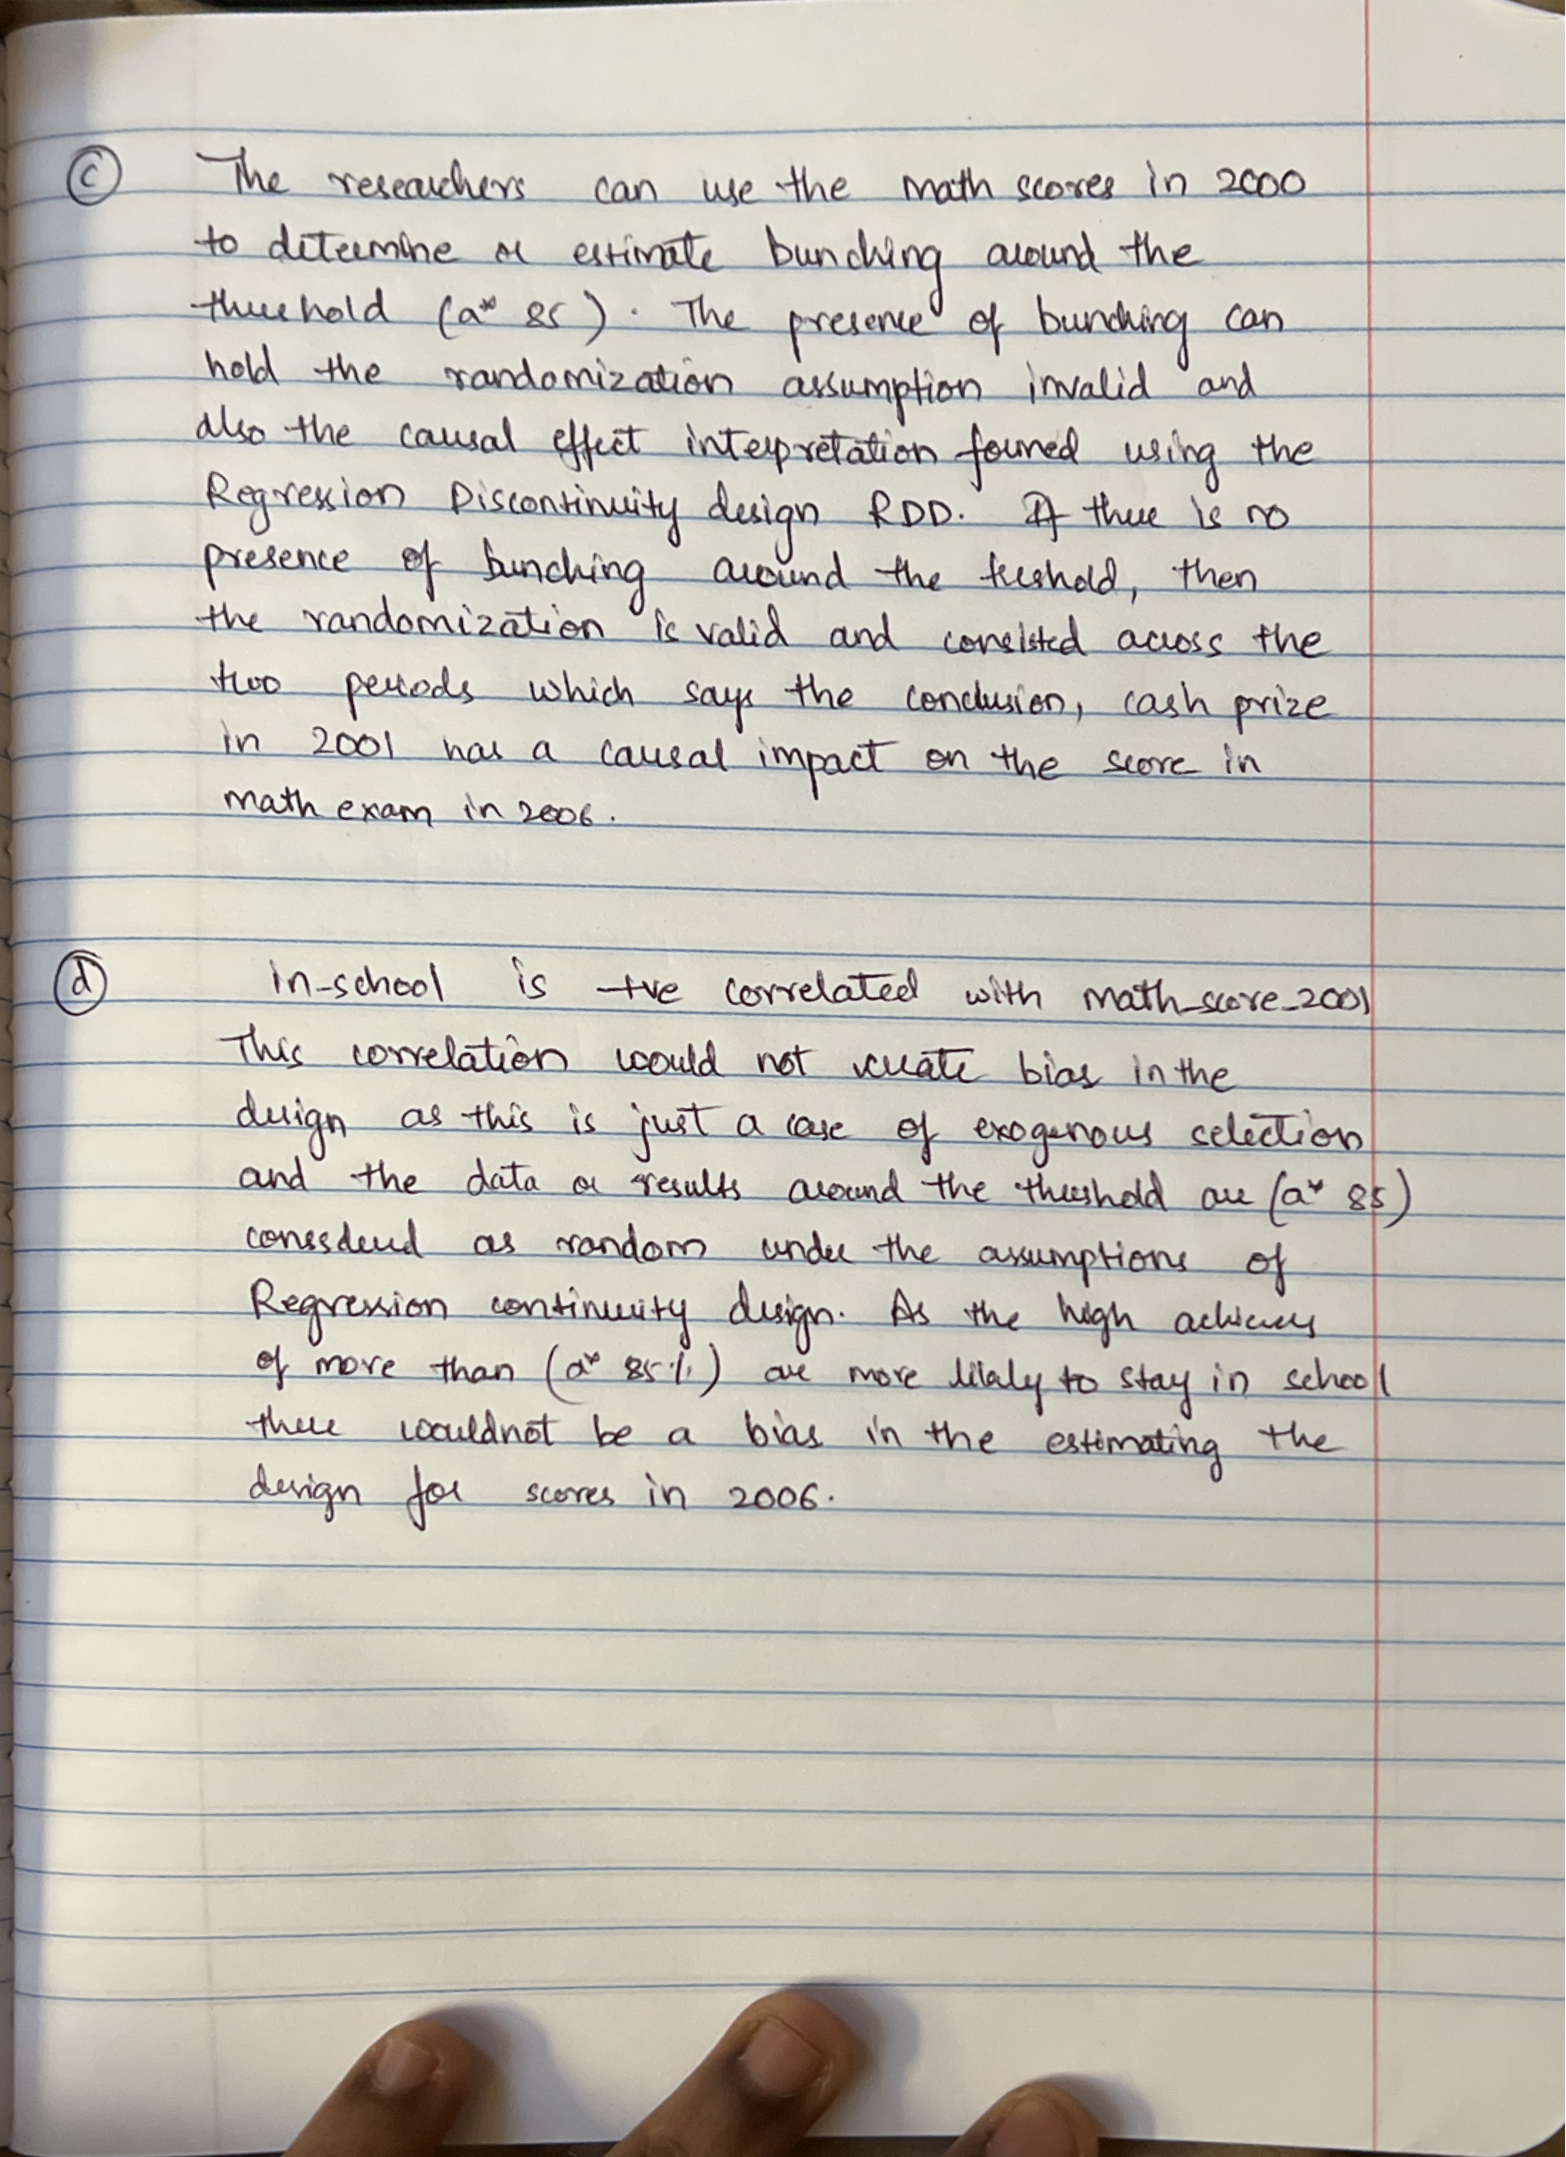 (c) The researchers can use the math scores in 2000
to determine or estimate bunching around the
threshold (a* 85). The presence of bunching can
hold the randomization assumption invalid and
also the causal effect interpretation formed using the
Regression Discontinuity design RDD. If there is no
presence of bunching around the treshold, then
the randomization is valid and consisted across the
two periods which says the conclusion, cash prize
in 2001 has a causal impact on the score in
math exam in 2006.
(d) in-school is +ve correlated with math_score_2001
This correlation would not create bias in the
design as this is just a case of exogenous selection
and the data or results around the threshold are (a* 85)
considered as random under the assumptions of
Regression continuity design. As the high achievers
of more than (a* 85%) are more likely to stay in school
there wouldnot be a bias in the estimating the
design for scores in 2006.